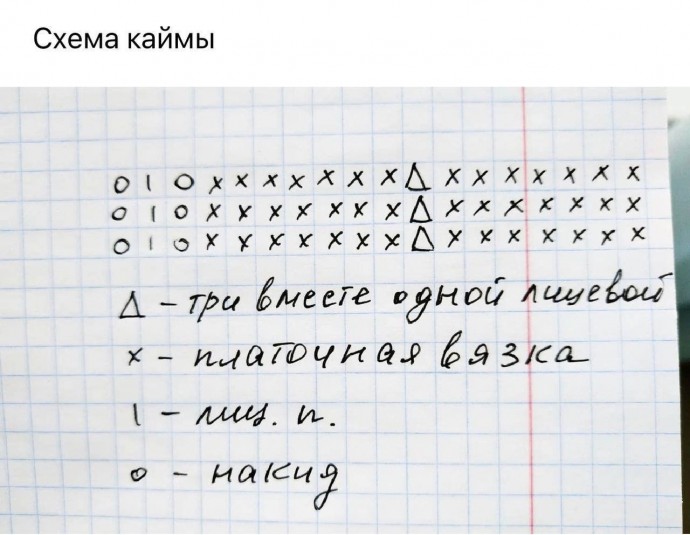 Схема каймы
o | o x x x x x x x Δ x x x x x x x
o | o x x x x x x x Δ x x x x x x x
o | o x x x x x x x Δ x x x x x x x
Δ – три вместе одной лицевой
x – платочная вязка
| – лиц. п.
o – накид